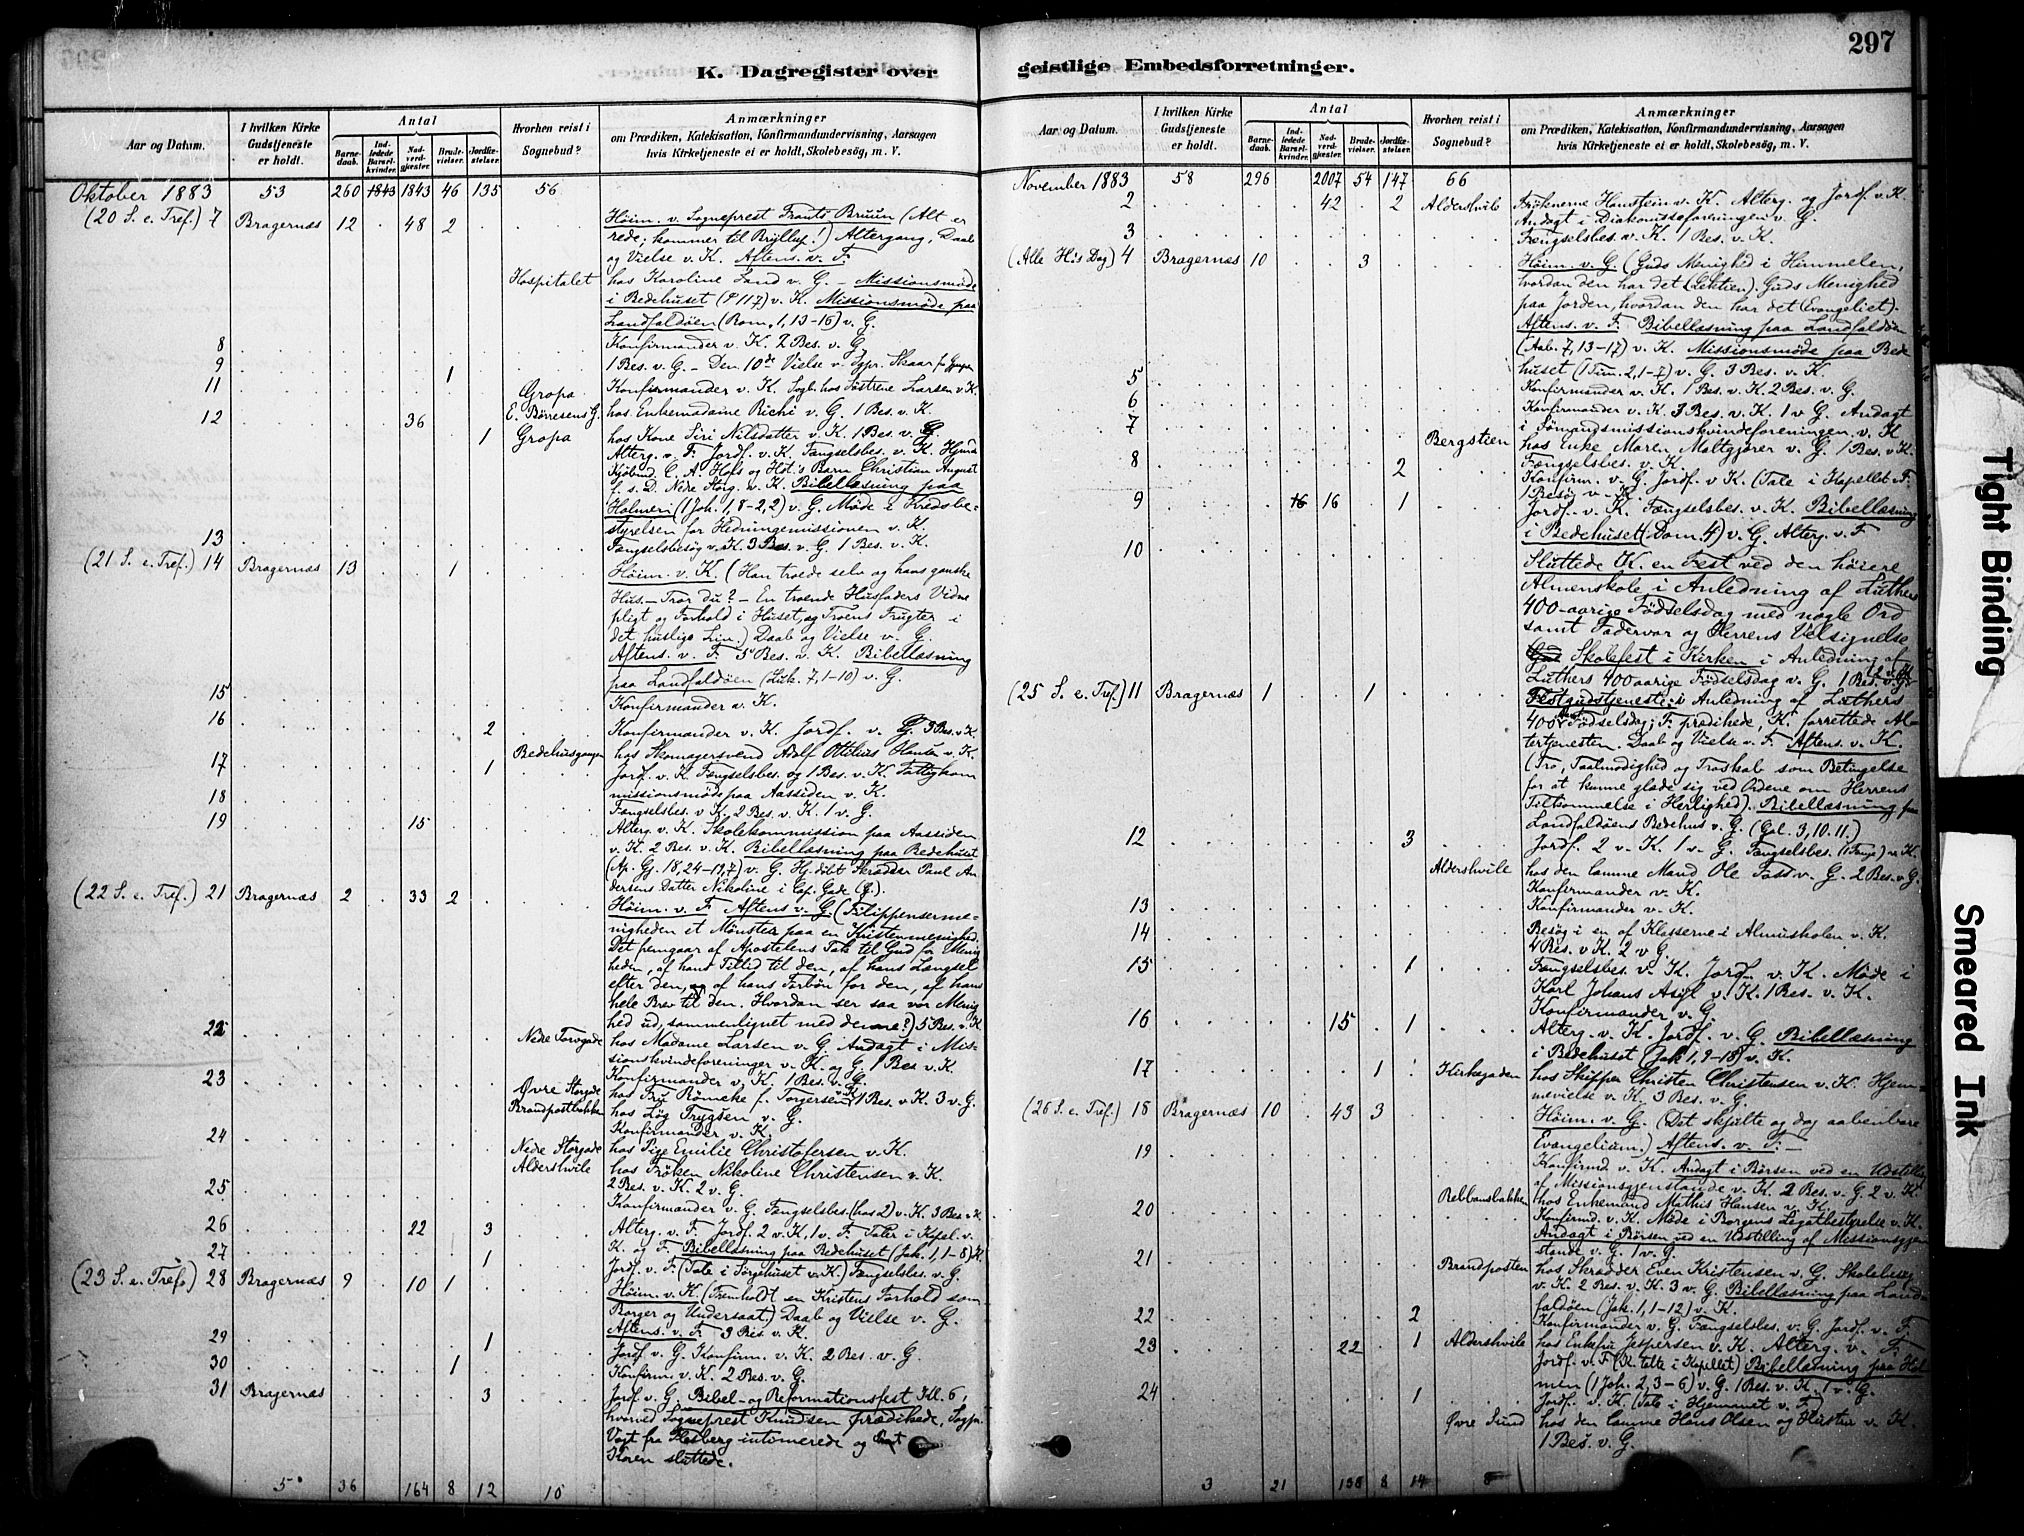 297
K. Dagregister over
geistlige Embedsforretninger.
Aar og Datum.
I hvilken Kirke Gudstjeneste er holdt.
Antal
Barnedaab.
Indledede Barselkvinder.
Nadverdgjester.
Brudevielser.
Jordfæstelser.
Hvorhen reist i Sognebud?
Anmærkninger
om Prædiken, Katekisation, Konfirmandundervisning, Aarsagen
hvis Kirketjeneste ei er holdt, Skolebesøg, m. V.
Oktober 1883 53 260 1843 1843 46 135 56
(20 S. e. Tref.) 7 Bragernæs 12 . 48 2 Höim. v. Sogneprest Frants Bruun (Alt er
rede; kommer til Bryllup!) Altergang, Daab
og Vielse v. K. Aftens. v. F.
Hospitalet hos Karoline Lund v. G. – Missionsmøde
i Bedehuset (P 117) v. K. Missionsmøde paa
Landfaldøen (Rom. 1, 13-16) v. G.
8 Konfirmander v. K. 2 Bes. v. G.
9 1 1 Bes. v. G. – Den 10de Vielse v.
11 Gropa Konfirmander v. K. Sogb. hos Søstrene Larsen v. K.
E. Børresens G. hos Enkemadame Richi v. G. 1 Bes. v. K.
12 36 1 Gropa hos Kone Siri Nilsdatter v. K. 1 Bes. v. G.
Alterg. v. F. Jordf. v. K. Fængselsbes. v. K.
Kjøbmd C. A. Hofs og Hst's Barn Christian August
f. s. D. Nedre Storg. v. K. Bibellæsning paa
Holmen (1 Joh. 1, 8-2, 2) v. G. Møde i Kredsbe-
styrelsen for Hedningemissionen v. K.
13 Fængselsbesøg v. K. 3 Bes. v. G. 1 Bes. v. K.
(21 S. e. Tref.) 14 Bragernæs 13 . . 1 Höim. v. K. (Han troede selv og hans ganske
Hus. – Tror du? – En troende Husfaders Vidne
pligt og Forhold i Huset, og Troens Frugter i
det huslige Liv.) Daab og Vielse v. G.
Aftens. v. F. 5 Bes. v. K. Bibellæsning
paa Landfaldøen (Luk. 7, 1-10) v. G.
15 Konfirmander v. K.
16 2 Konfirmander v. K. Jordf. v. G. 3 Bes. v. K.
Bedehusgangen hos Skomagersvend Adolf Ottilius Hansen v. K.
17 1 Jordf. v. K. Fængselsbes. og 1 Bes. v. K. Fattigkom
missionsmøde paa Aassiden v. K.
18 Fængselsbes. v. K. 2 Bes. v. K. 1 v. G.
19 15 Alterg. v. K. Skolekommission paa Aassiden
v. K. 2 Bes. v. K. Bibellæsning paa Bedehuset
(Ap. Gj. 18, 24-19, 7) v. G. Hj.døbt Skrædder Paul An
dersens Datter Nikoline i Cap. Gade (G.).
(22 S. e. Tref.) 21 Bragernæs 2 . 33 2 Höim. v. F. Aftens. v. G. (Filippenserme-
nigheden et Mønster paa en Kristenmenighed.
Det fremgaar af Apostelens Tak til Gud for Menig
heden, af hans Tillid til den, af hans Længsel
efter den, og af hans Forbøn for den, af hans
hele Brev til den. Hvordan ser saa vor Menig
hed ud, sammenlignet med denne?) 5 Bes. v. K.
22 Nedre Torvgade hos Madame Larsen v. G. Andagt i Mis-
sionskvindeforeninger v. K. og G. 1 Bes. v. K.
23 Konfirmander v. K. 1 Bes. v. G.
Øvre Storgade hos Frk Römcke f. Torgersen v. K. 1 Bes. v. K. 3 v. G.
Brandpostbakken hos Løg Trygsen v. G.
24 Konfirmander v. K.
Nedre Storgade hos Pige Emilie Christofersen v. K.
Aldershvile hos Frøken Nikoline Christensen v. K.
25 2 Bes. v. K. 2 v. G.
Konfirmander v. G. Fængselsbes. (hos 2) v. K. 3 Bes. v. K.
26 22 3 Alterg. v. F. Jordf. 2 v. K, 1 v. F. Taler i Kapel. v.
K. og F. Bibellæsning paa Bedehuset (Jak. 1, 1-8) K.
27 1 Jordf. v. F. (Tale i Sørgehuset v. K.) Fængselsbes. v. G.
(23 S. e. Tref.) 28 Bragernæs 9 . 10 1 Höim. v. K. (Fremholdt en Kristens Forhold som
Borger og Undersaat.) Daab og Vielse v. G.
Aftens. v. F. 3 Bes. v. K.
29 1 Jordf. v. G. Konfirm. v. K. 2 Bes. v. G.
30 1 Konfirm. v. K. 2 Bes. v. G.
31 Bragernæs 3 Jordf. v. G. Bibel- og Reformationsfest Kl. 6,
hvorved Sogneprest Knudsen prædikede, Sogpr.
Vogt fra Flesberg intonerede og
Koren sluttede.
5 36 164 8 12 10
Aar og Datum.
I hvilken Kirke Gudstjeneste er holdt.
Antal
Barnedaab.
Indledede Barselkvinder.
Nadverdgjester.
Brudevielser.
Jordfæstelser.
Hvorhen reist i Sognebud?
Anmærkninger
om Prædiken, Katekisation, Konfirmandundervisning, Aarsagen
hvis Kirketjeneste ei er holdt, Skolebesøg, m. V.
November 1883 58 296 2007 54 147 66
2 42 . 2 Aldershvile Frøknerne Hanstein v. K. Alterg. og Jordf. v. K.
Andagt i Diakonisseforeningen v. G.
3 Fængselsbes. v. K. 1 Bes. v. K.
(Alle H's Dag) 4 Bragernæs 10 . . 3 Höim. v. G. (Guds Menighed i Himmelen,
hvordan den har det (Lektien). Guds Menighed
paa Jorden, hvordan den har det (Evangeliet).
Aftens. v. F. Bibellæsning paa Landfaldøen
(Aab. 7, 13-17) v. K. Missionsmøde paa Bede
huset (1 Tim. 2, 1-7) v. G. 3 Bes. v. K.
5 Konfirmander v. K. 1 Bes. v. K. 2 Bes. v. G.
6 Konfirmander v. K. 3 Bes. v. K. 1 v. G. Andagt
7 i Sømandsmissionskvindeforeningen v. K.
Bergstien hos Enke Maren Maltgjører v. G. 1 Bes. v. K.
8 2 Fængselsbes. v. K.
Konfirm. v. G. Jordf. v. K. (Tale i Kapellet F.
1 Besøg v. K.
9 16 16 . 1 Jordf. v. K. Fængselsbes. v. K. Bibellæsning
i Bedehuset (Dom. 4) v. G. Alterg. v. F.
10 Sluttede K. en Fest ved den høiere
Almenskole i Anledning af Luthers
400-aarige Fødselsdag med nogle Ord
samt Fadervor og Herrens Velsignelse
Skolefest i Kirken i Anledning af
Luthers 400aarige Fødselsdag v. G. 1 Bes. v. G.
(25 S. e. Tref.) 11 Bragernæs 1 . . 1 Festgudstjeneste i Anledning af Luthers
400 Fødselsdag; F. prædikede, K. forrettede Al-
tertjenesten. Daab og Vielse v. F. Aftens. v. K.
(Tro, Taalmodighed og Troskab som Betingelse
for at kunne glæde sig ved Ordene om Herrens
Tilkommelse i Herlighed). Bibellæsning paa
Landfaldøens Bedehus v. G. (Gal. 3, 10. 11.)
12 3 Jordf. 2 v. K. 1 v. G. Fængselsbes. (1 Fange) v. K.
Aldershvile hos den lamme Mand Ole Foss v. G. 2 Bes. v. G.
Konfirmander v. K.
13 Konfirmander v. K.
14 Besøg i en af Klasserne i Almuskolen v. K.
4 Bes. v. K. 2 v. G.
15 1 Fængselsbes. v. K. Jordf. v. K. Møde i
Karl Johans Asyl v. K. 1 Bes. v. K.
Konfirmander v. G.
16 15 . 1 Alterg. v. K. Jordf. v. G. Bibellæsning
i Bedehuset (Jak. 1, 9-18) v. K.
17 1 Kirkegaden hos Skipper Christen Christensen v. K. Hjem-
mevielse v. K. 3 Bes. v. G.
(26 S. e. Tref.) 18 Bragernæs 10 . 43 3 Höim. v. G. (Det skjulte og dog aabenbare
Evangelium) Aftens. v. F. –
19 Konfirmd. v. K. Andagt i Børsen ved en Udstilling
af Missionsgjenstande v. K. 2 Bes. v. G. 2 v. K.
Rebbansbakken hos Enkemand Mathis Hansen v. K.
20 Konfirmd. v. K. Møde i Borgens Legatbestyrelse v. K.
Andagt i Børsen ved en Udstilling af Missionsgjen
stande v. G. 1 v. G.
21 Brandposten hos Skrædder Even Kristensen v. G. Skolebesøg
v. K. 2 Bes. v. K. 3 v. G. Bibellæsning paa Land-
faldøen (Jak. 1, 1-12) v. K.
22 2 Konfirmander v. G. Fængselsbes. v. G. Jordf. v. F.
23 22 . 1 Aldershvile hos Enkefru Jespersen v. K. Alterg. v. F.
Jordf. v. F. (K. talte i Kapellet) Bibellæsning paa Hol
men (1 Joh. 2, 3-6) v. G. 1 Bes. v. K. 1 v. G.
24 1 Jordf. v. K. (Tale i Hjemmet v. F.)
Øvre Sund hos den lamme Hans Olsen og Hustru v. K.
1 Bes. v. G.
3 21 138 8 14 8
Tight Binding
Smeared Ink